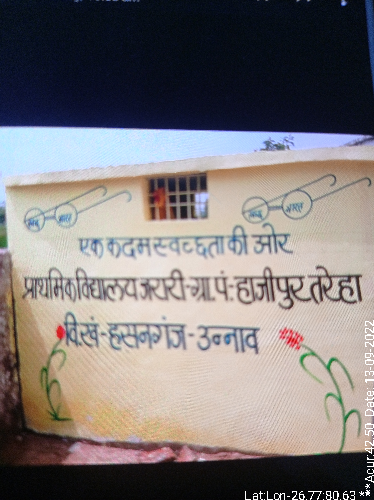 स्वच्छ भारत
स्वच्छ भारत
एक कदम स्वच्छता की ओर
प्राथमिक विद्यालय जरारी-ग्रा.पं:-हाजीपुर तरेहा
वि.खं-हसनगंज-उन्नाव
Lat:Lon-26.77:80.63
***Acur:42.50 Date: 13-09-2022